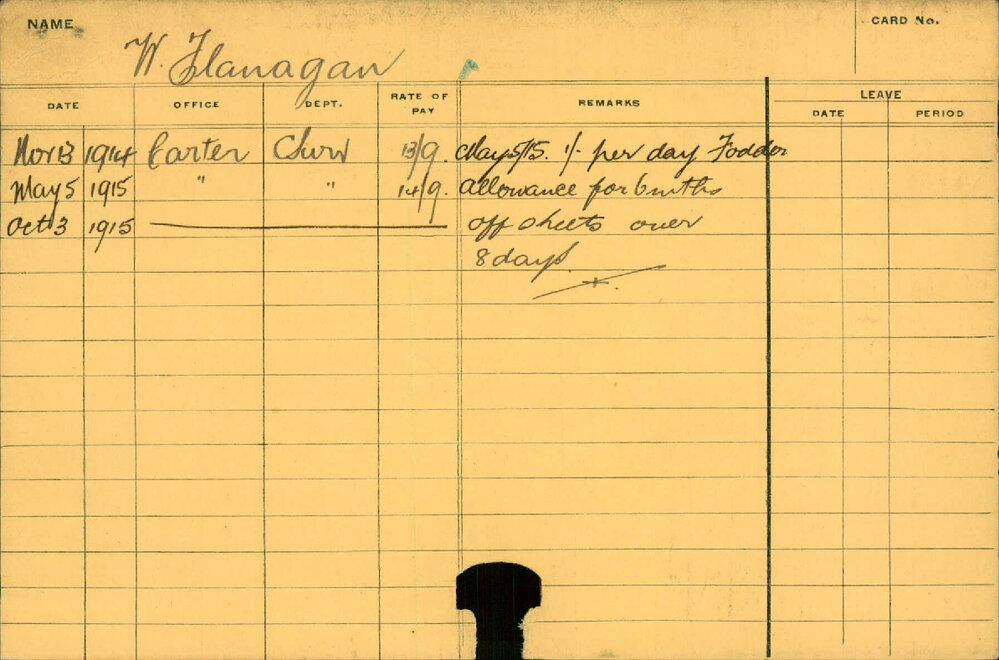 NAME
CARD No.
W. Flanagan
DATE OFFICE DEPT. RATE OF PAY REMARKS LEAVE
DATE PERIOD
Nov 13 1914 Carter 13/9. May 5/15. 1/- per day Fodder
May 5 1915 " " 14/9. allowance for 6 mnths
Oct 3 1915 off sheets over
8 days.